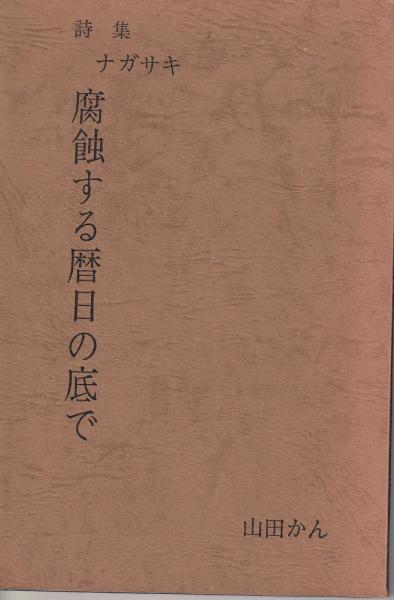 詩集
ナガサキ
腐蝕する暦日の底で
山田かん